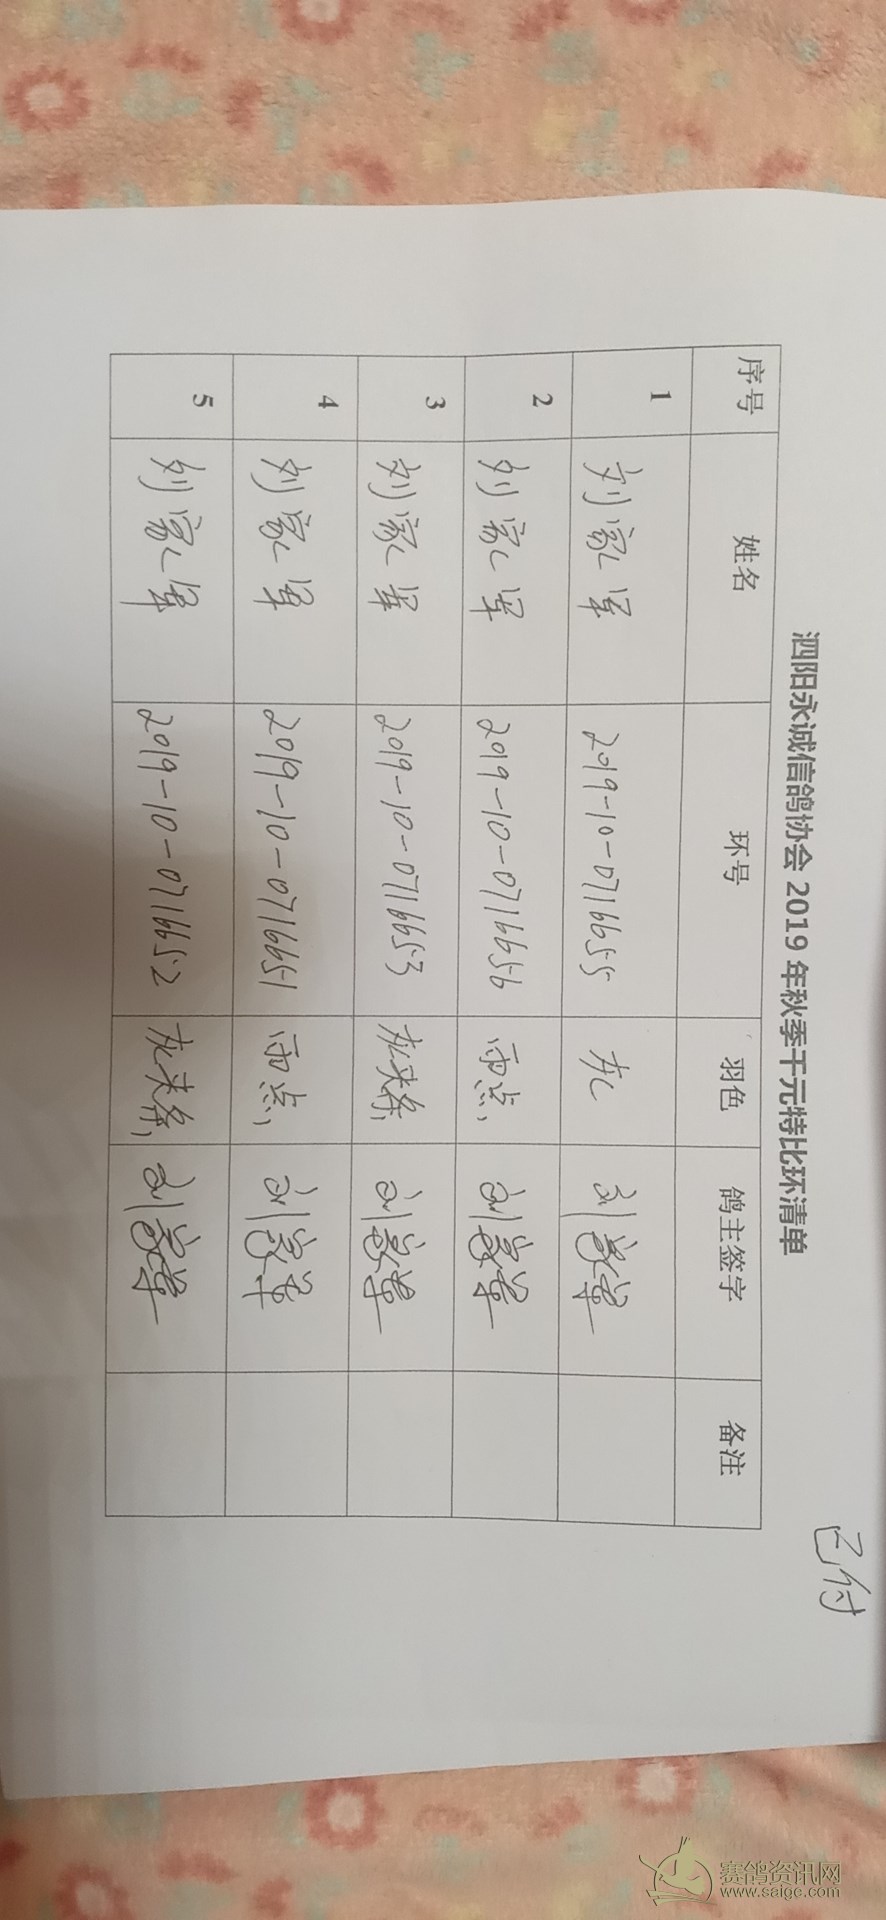 已付
泗阳永诚信鸽协会 2019 年秋季千元特比环清单
序号 姓名 环号 羽色 鸽主签字 备注
1 刘家军 2019-10-0716655 灰 刘家军
2 刘家军 2019-10-0716656 雨点, 刘家军
3 刘家军 2019-10-0716653 灰夹条, 刘家军
4 刘家军 2019-10-0716651 雨点, 刘家军
5 刘家军 2019-10-0716652 灰夹条, 刘家军
赛鸽资讯网
www.saigc.com